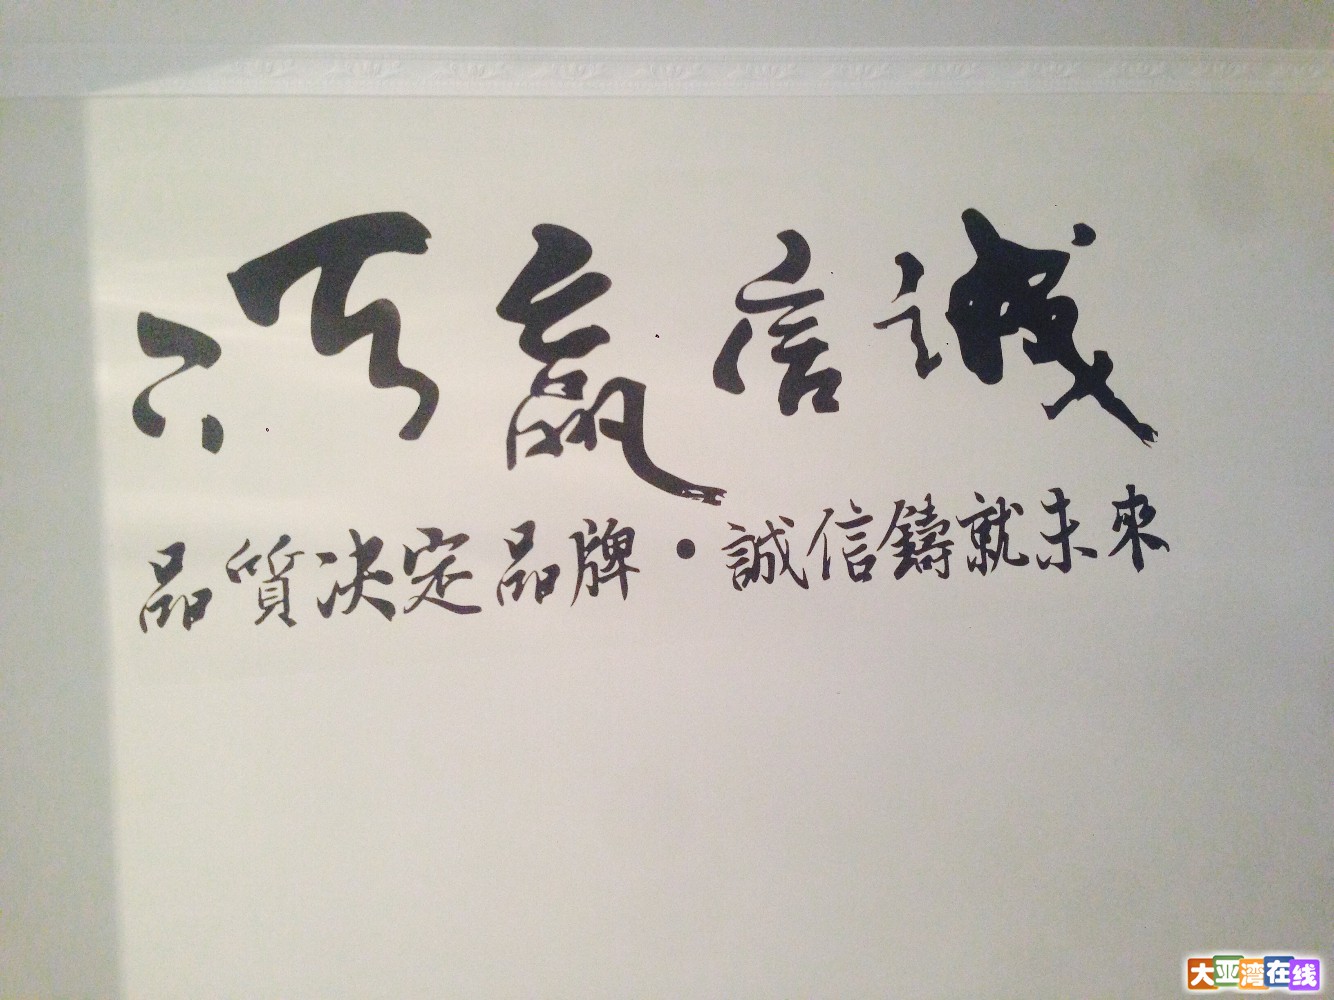 誠信贏天下
品質決定品牌·誠信鑄就未來
大亚湾在线